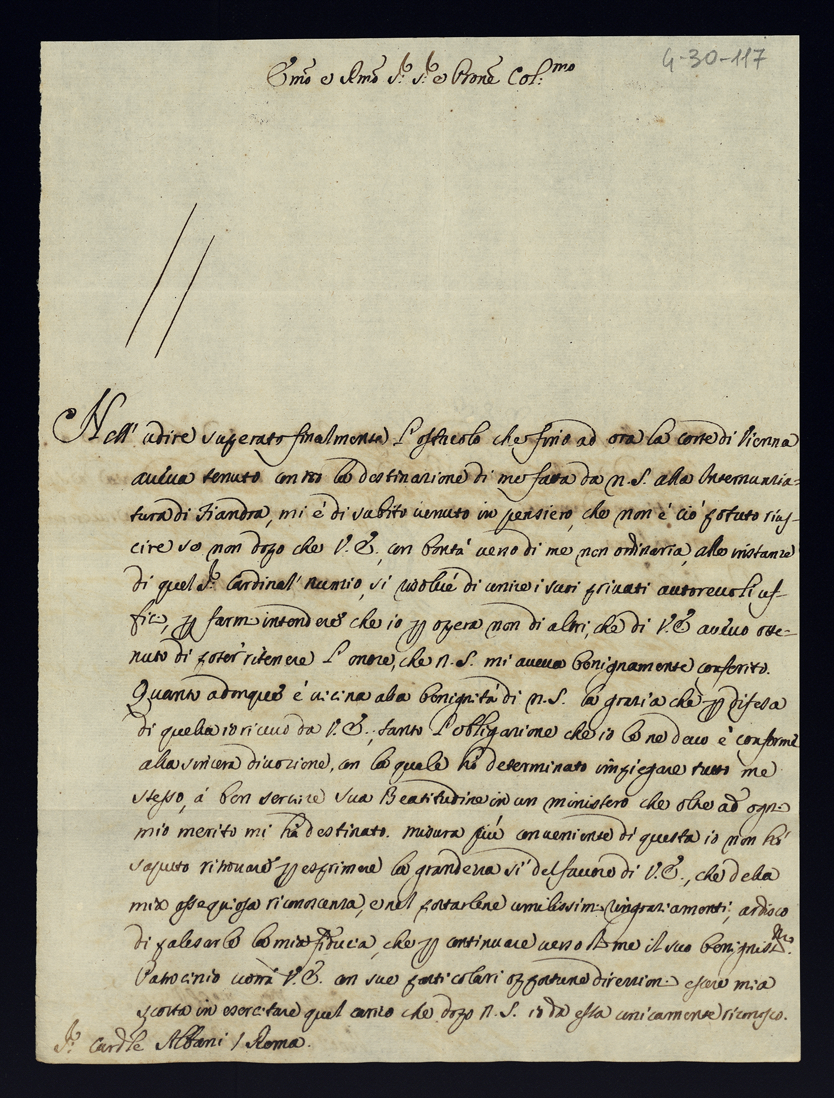 4-30-117
Em̃o e Rm̃o Sr. Sr. e Pron̄e Col:mo
Nell' udire superato finalmente l'ostacolo che fino ad ora la corte di Vienna
aveva tenuto contro la destinazione di me fatta da N.S. alla Internunzia=
tura di Fiandra, mi è di subito venuto in pensiero, che non è ciò potuto rius-
cire se non dopo che V.E., con bontà verso di me non ordinaria, alle instanze
di quel Sr. Cardinal' nunzio, si volle di unire i suoi privati autorevoli uf-
fici, per farmi intendere che io per opera non di altri, che di V.E. avevo otte=
nuto di poter ritenere l'onore, che N.S. mi aveva benignamente conferito.
Quanto adonque è vicina alla benignità di N.S. la grazia che per difesa
di quella io ricevo da V.E., tanto l'obligazione che io le ne devo è conforme
alla sincera divozione, con la quale hò determinato impiegare tutto me
stesso, à ben servire sua Beatitudine in un ministero che oltre ad ogni
mio merito mi hà destinato. misura più conveniente di questa io non hò
saputo ritrovare per esprimere la grandezza sì del favore di V.E., che della
mia ossequiosa riconoscenza, e nel portarlene umilissimi ringraziamenti, ardisco
di palesarle la mia fiducia, che per continuare verso di me il suo benigniss.mo
Patrocinio vorrà V.E. con sue particolari opportune direzioni essere mia
scorta in esercitare quel carico che dopo N.S. io da essa unicamente riconosco.
Sr. Cardle Albani / Roma.